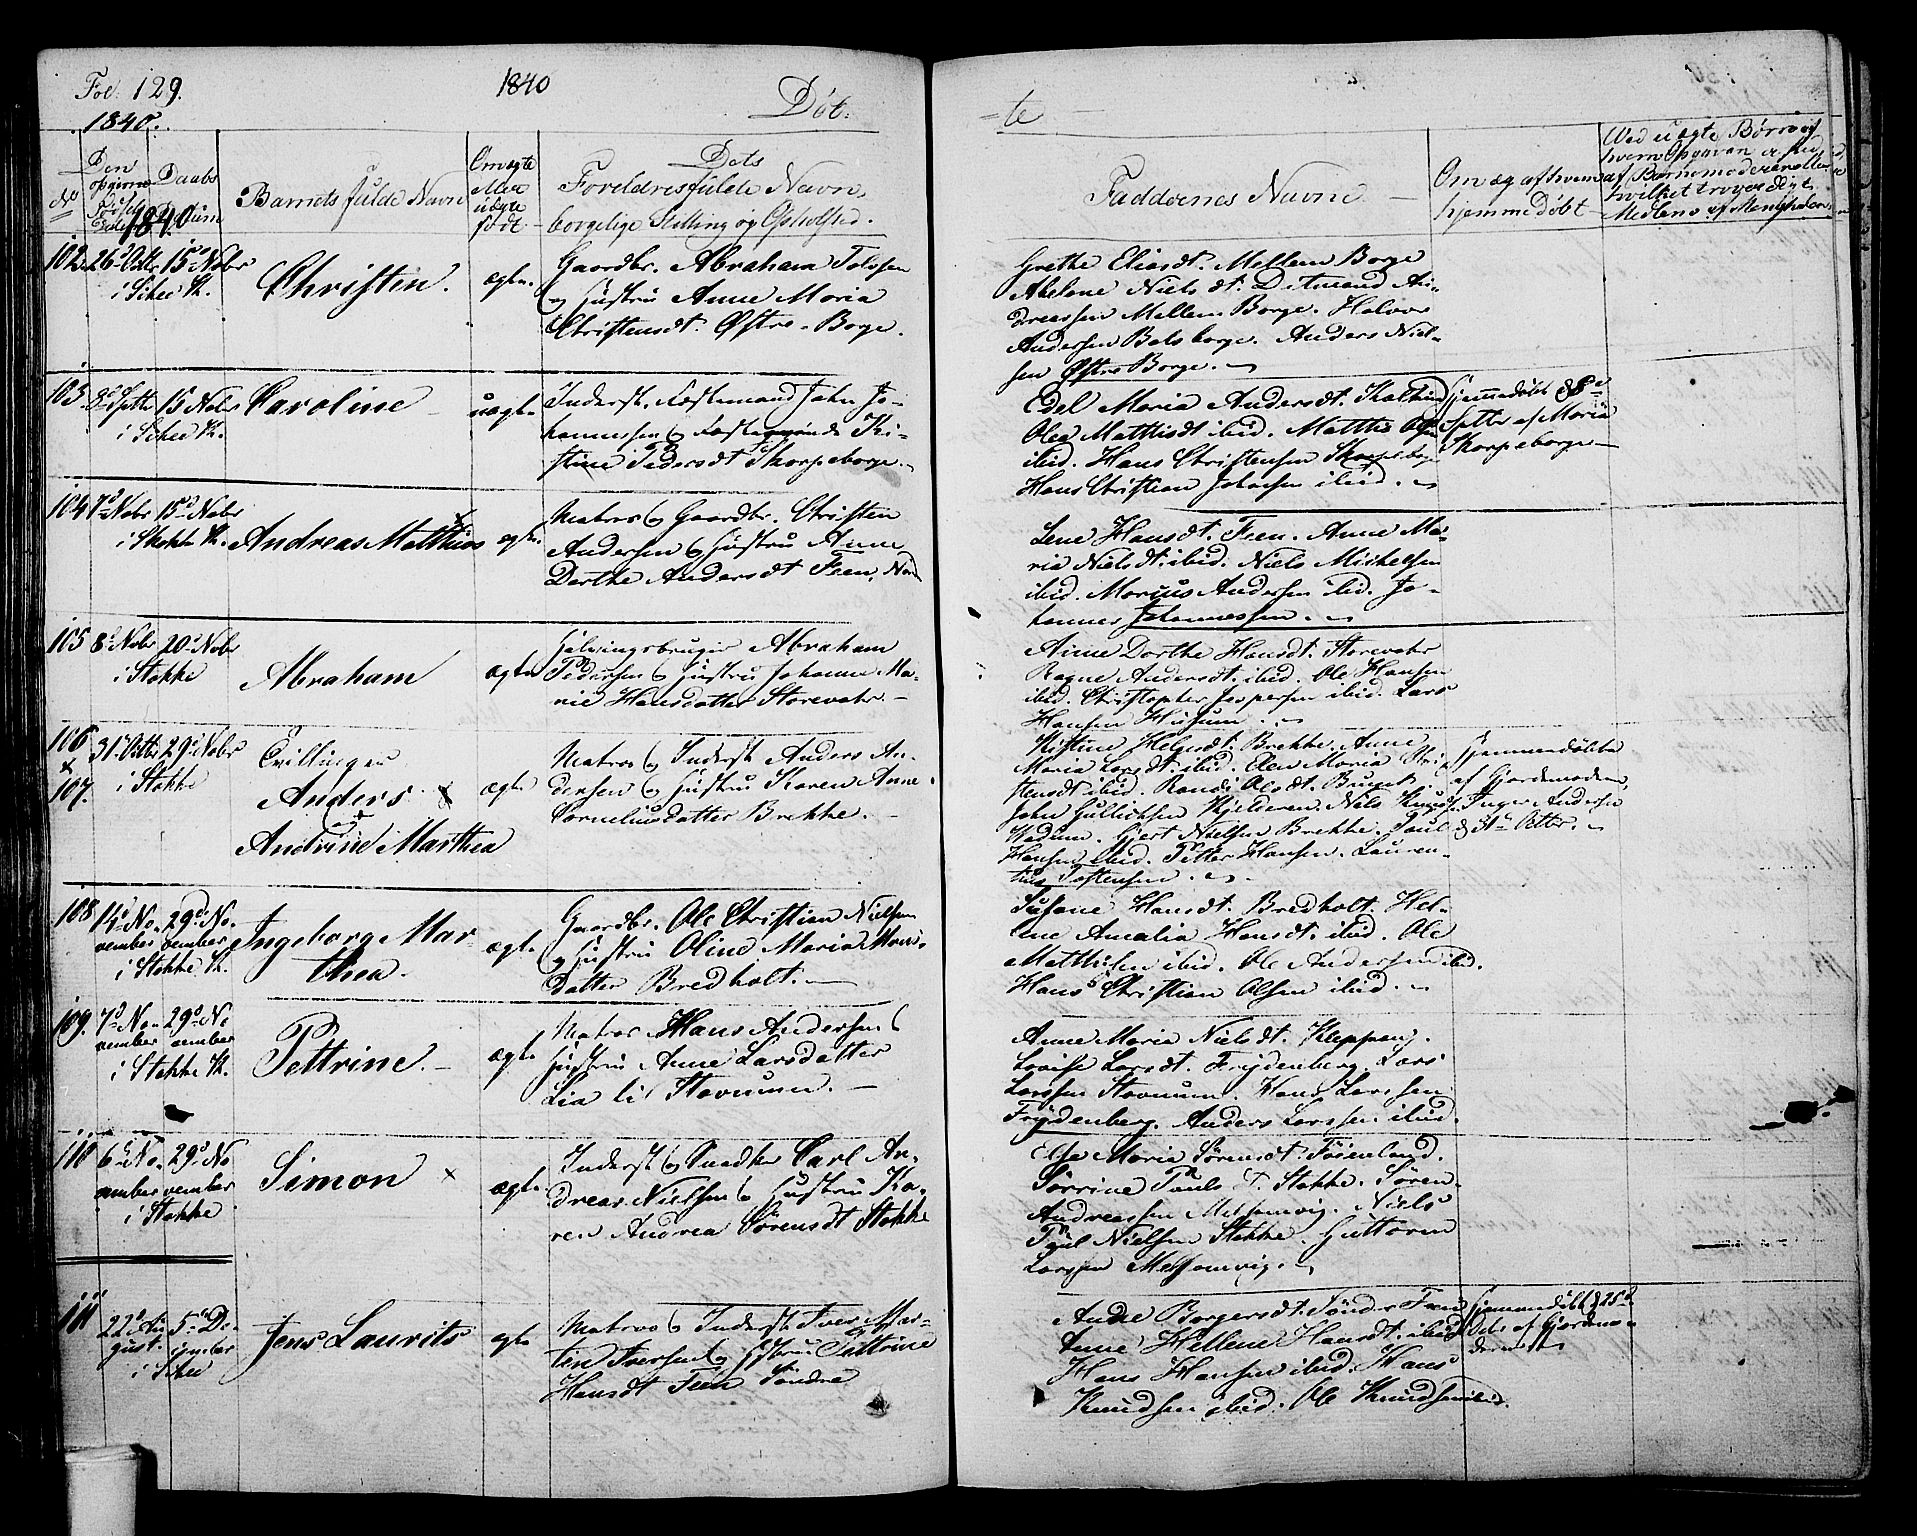 Fol: 129.
1840
Døb-
-te
1840.
No
Den
opgivne
Fødsels
Datum
Daabs
Datum
1840
Barnets fulde Navn
Om ægte
eller
uægte
født
Dets
Forældres fulde Navn,
borgelige Stilling og Opholsted.
Faddernes Navne
Om og af hvem
hjemmedøbt
Ved uægte Børn af
hvem Opgaven er
af Barnemoderen eller
hvilket troværdigt
Medlem af Menigheden
102. 26 Octbr 15 Novbr
i Scheé K.
Christen.
ægte.
Gaardbr. Abraham
og Hustru Anne Maria
Christensdt. Østre-Borge.
Grethe Eliasdt. Mellem Borge
Abelone Nielsdt. Ditmand An-
dreassen Mellem Borge. Halvor
Andersen Bolsborge. Anders Niel-
sen Østre Borge.
103. 8 Septr 15 Novbr
i Scheé K.
Caroline
uægte
Inderst. Fæstemand John Jo-
hannessen og Fæstemøe Kri-
stine Pedersdt Skorpeborge.
Edel Maria Andersdt.
Olea Matthisdt ibid. Matthis
ibid. Hans Christensen Skorpeborge
Hans Christian Johnsen ibid.
Hjemmedøbt d 8de
Septr af Maria
Skorpeborge
104 7 Novbr 15 Novbr
i Stokke K.
Andreas Matthias
ægte
Matros og Gaardbr. Christen
Andersen og Hustru Anne
Dorthe Andersdt Feen, Nord
Lene Hansdt. Feen. Anne Ma-
ria Nielsdt. ibid. Niels Michelsen
ibid. Marius Andersen ibid. Jo-
hannes Johannessen.
105 8 Novbr 20 Novbr
i Stokke
Abraham
ægte
Halvingsbruger Abraham
Pedersen og Hustru Johanne Ma-
rie Hansdatter Storevahr.
Anne Dorthe Hansdt. Storevahr
Ragne Andersdt. ibid. Ole Hansen
ibid. Christopher Jespersen ibid. Lars
Hansen Husum.
106
x
107.
31 Octbr 29 Novbr
i Stokke
Tvillinger
Anders
og
Andrine Marthea
ægte
Matros og Inderst Anders An-
dersen og Hustru Karen Anne
Corneliusdatter Brekke.
Kistine Helgesdt. Brekke, Anne
Maria Larsdt. ibid. Elen Maria Kri-
stensdt. ibid. Randi Olsdt.
John Gullichsen Kjelderen. Niels Knuds.
Wedum. Gjert Nielsen Brekke. Paul
Hansen ibid. Petter Hansen. Lauren-
tius Tostensen.
Hjemmedøbte
af Gjordemoderen,
Inger Andersen
d 31 Octbr.
108 14 No- 29 No-
vember vember
i Stokke K.
Ingeborg Mar-
thea.
ægte
Gaardbr. Ole Christian Nielsen
og Hustru Oline Maria
Datter Bredholt.
Susane Hansdt. Bredholt. Hel-
lene Amalia Hansdt. ibid. Ole
Matthisen ibid. Ole Andersen ibid.
Hans Christian Olsen ibid.
109. 7 No- 29 No-
vember vember
i Stokke K.
Pettrine.
ægte
Matros Hans Andersen og
Hustru Anne Larsdatter
Lia
Anne Maria Nielsdt. Kleppan.
Lovise Larsdt. Frydenberg. Lars
Larssen Stavnum. Hans Larssen
Frydenberg. Anders Larssen ibid.
110 6 No- 29 No
vember vember
i Stokke
Simon
ægte
Inderst og Snedker Carl An-
dreas Nielsen og Hustru Ka-
ren Andrea Sørensdt Stokke
Else Maria Sørensdt.
Sørrine Pauls D. Stokke. Søren
Andreassen Melsomvig. Niels
Paul Nielsen Stokke. Guttorm
Larssen Melsomvig.
111 22 Au- 5 De-
gust. cember
i Scheé
Jens Laurits
ægte
Matros og Inderst Iver Mar-
tin Iversen og Hustru Pettrine
Hansdt Feen Søndre
Andie Borgersdt. Søndre Feen
Anne Hellene Hansdt. ibid
Hans Hansen ibid. Hans
Knudsen ibid. Ole Knudsen ibid.
Hjemmedøbt d 25
ds af Gjordemo-
deren